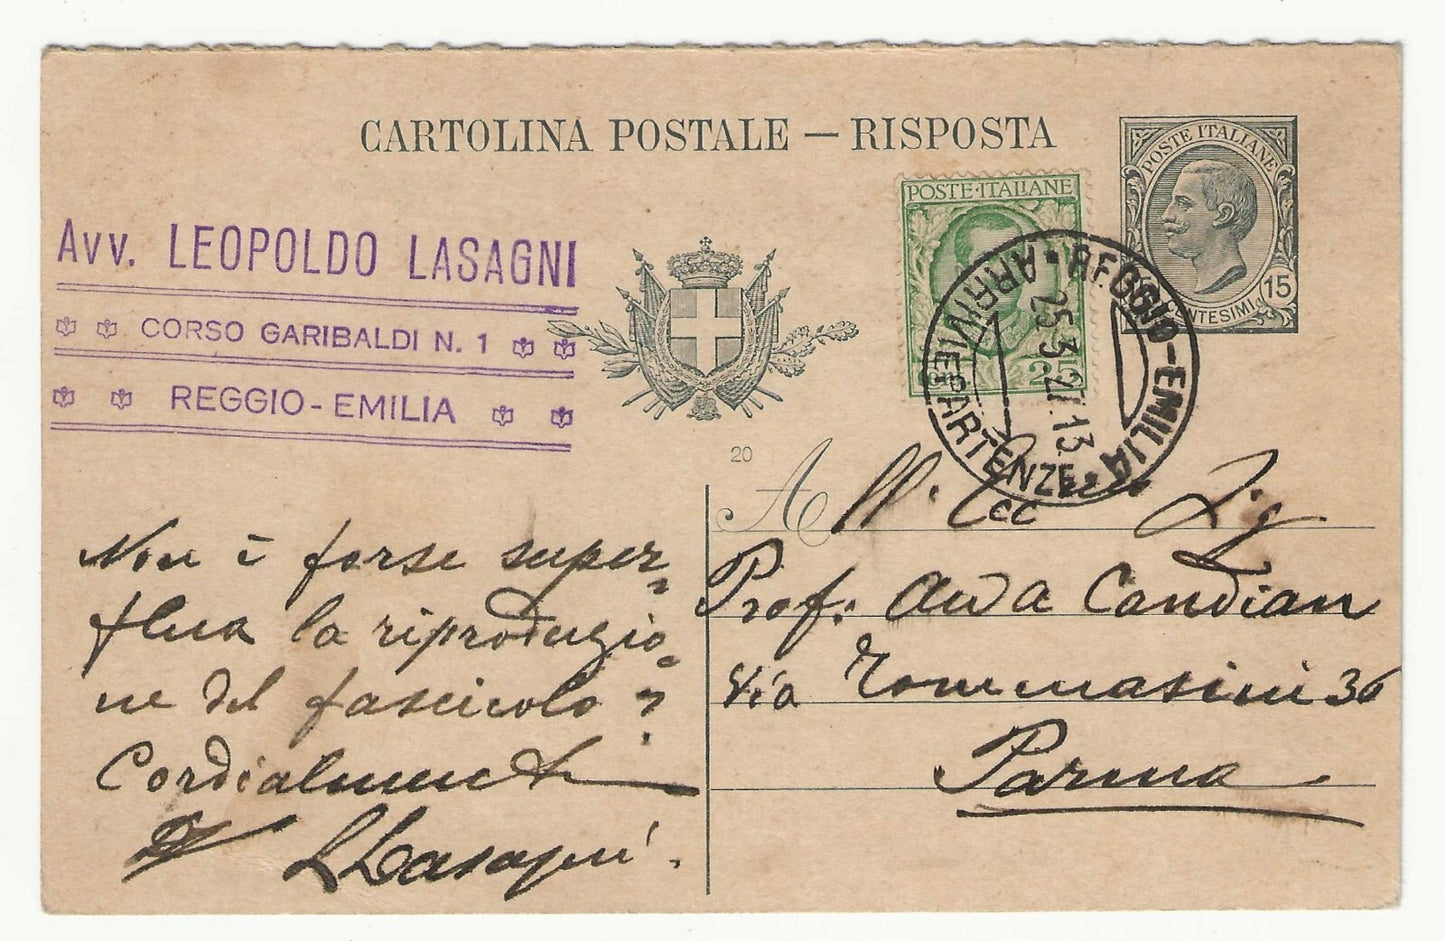 CARTOLINA POSTALE — RISPOSTA
POSTE ITALIANE
15
CENTESIMI
POSTE·ITALIANE
25
REGGIO-EMILIA
ARRIVI E PARTENZE
25.3.27.13
Avv. LEOPOLDO LASAGNI
CORSO GARIBALDI N. 1
REGGIO-EMILIA
20
All'Ecc Sig
Prof. Avv Candian
Via Tommasini 36
Parma
Non è forse super=
flua la riproduzio=
ne del fascicolo?
Cordialmente
LLasagni.